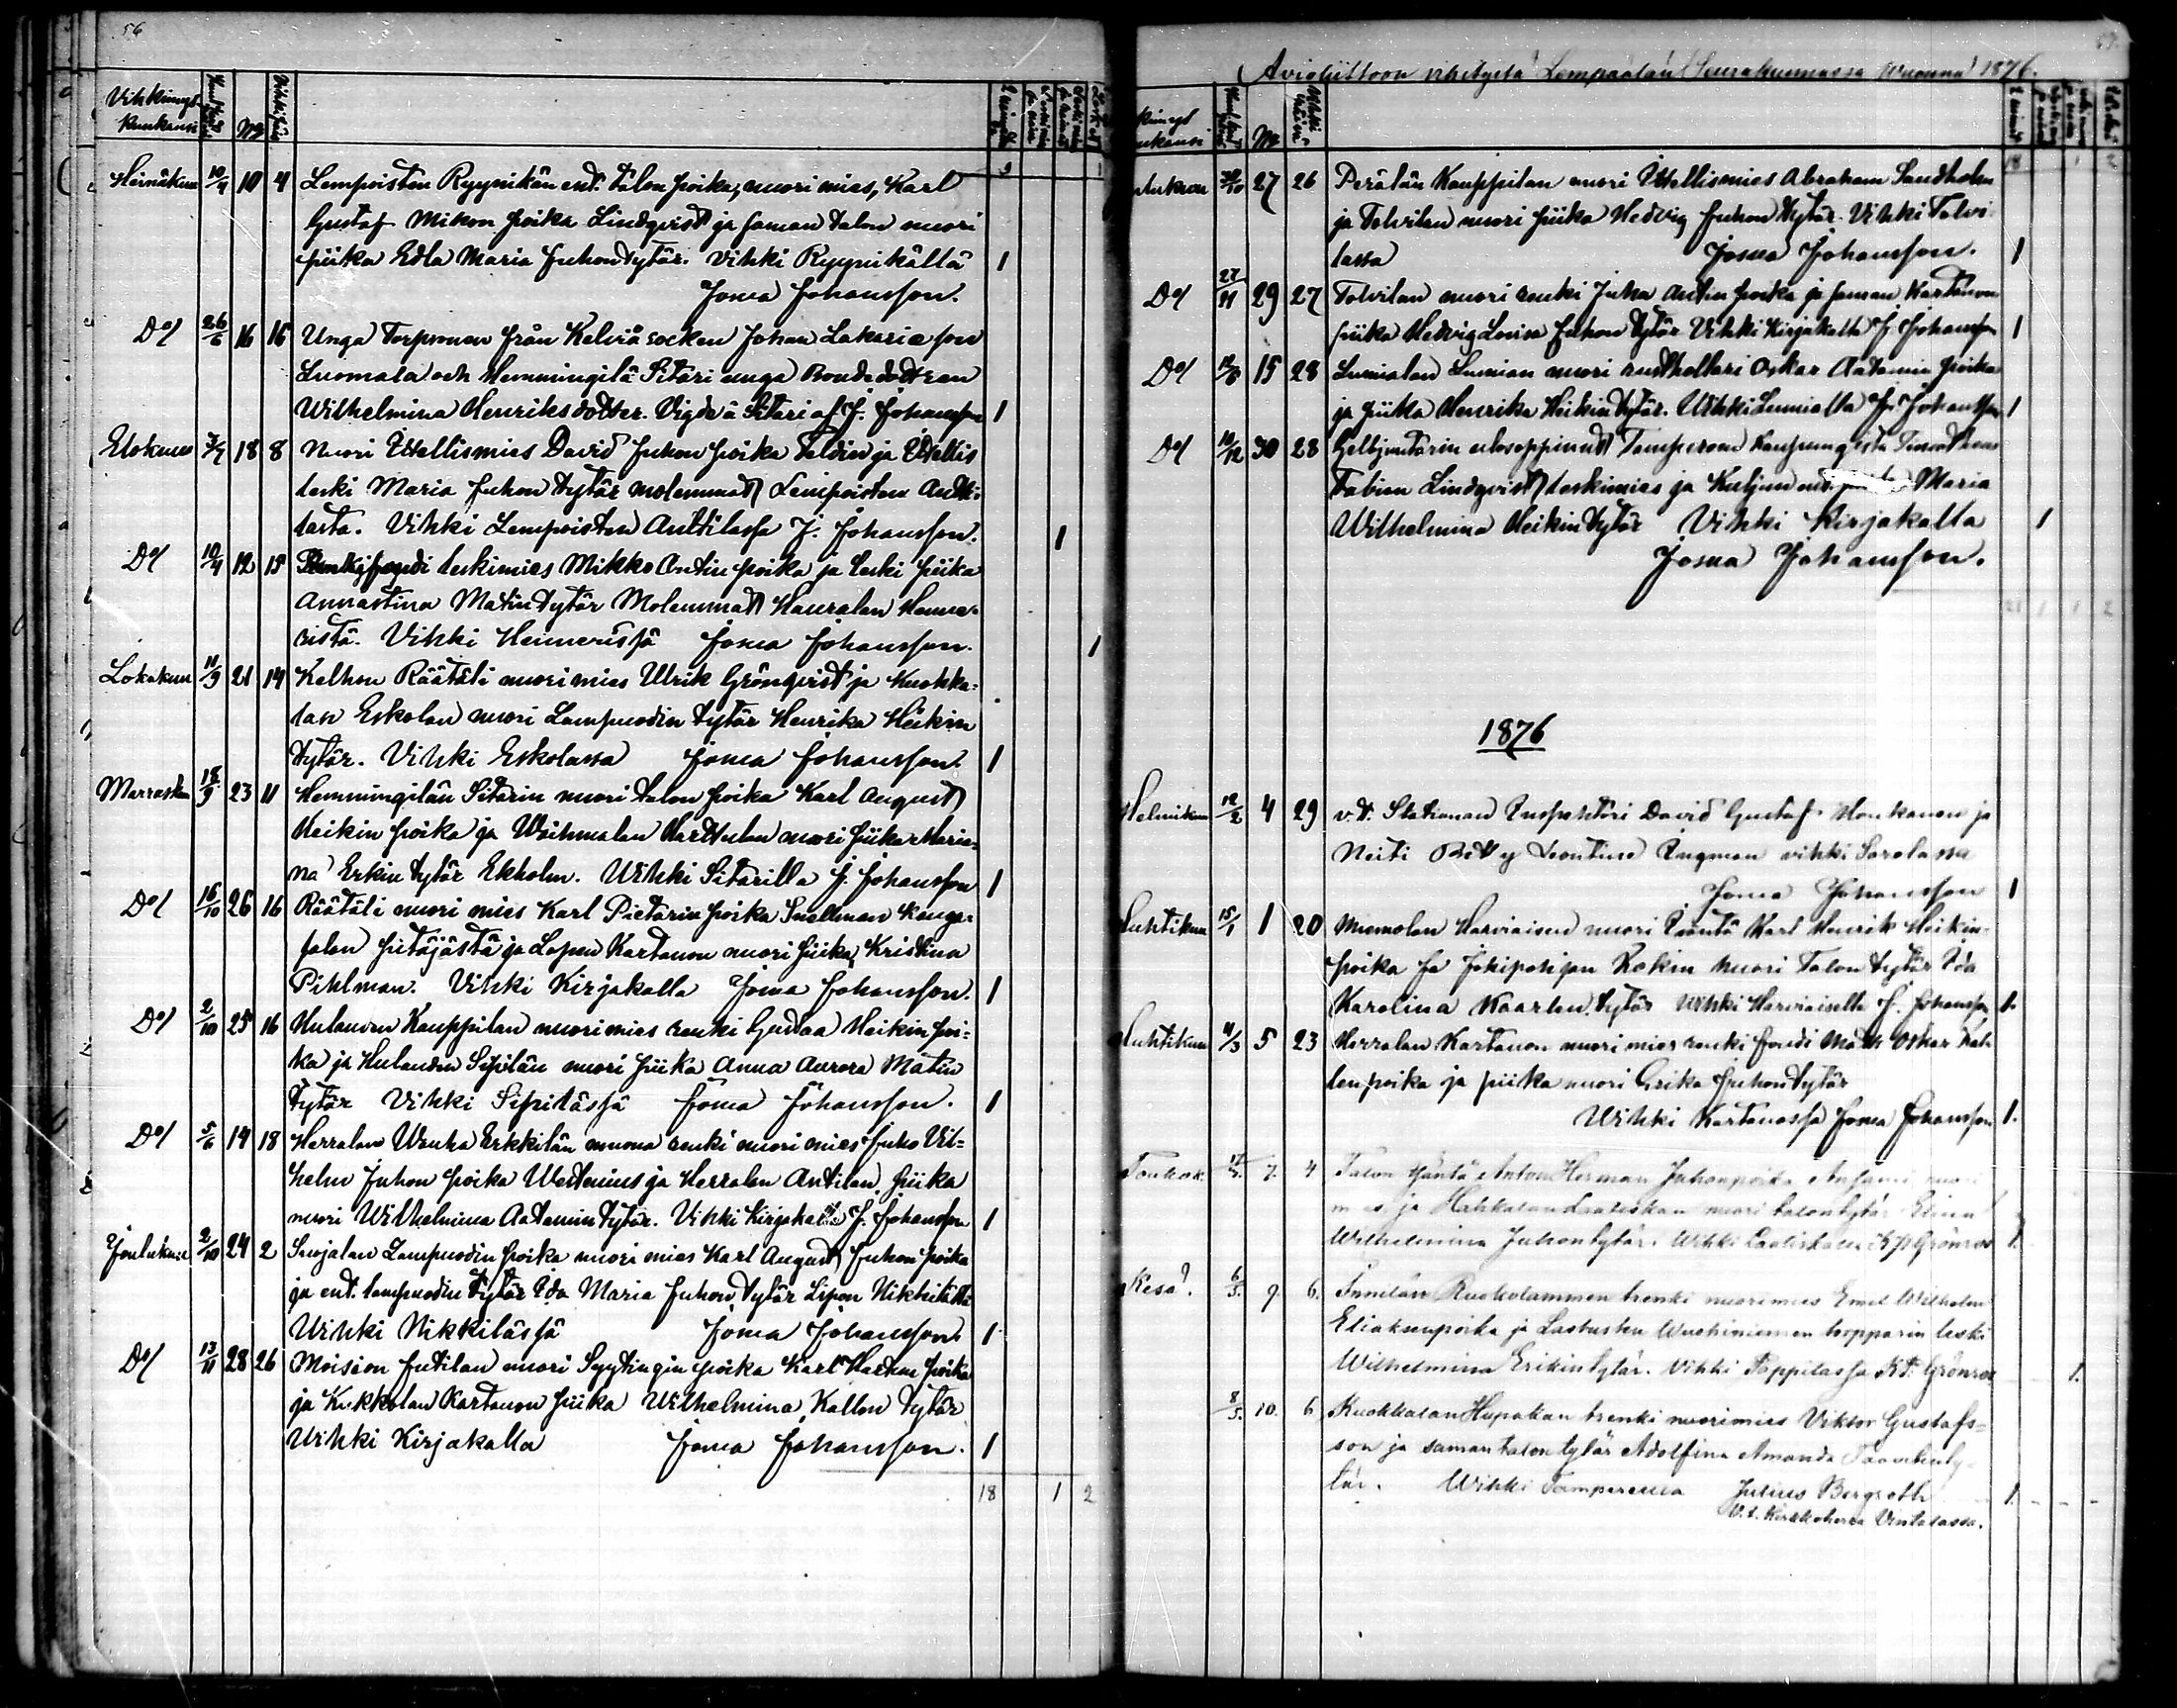 56
Vihkimys
kuukausi
No
Heinäkuu 10/4 10 4 Lempoisten Ryynikän ent. talon poika, nuori mies, Karl
Gustaf Mikon poika Lindqvist ja saman talon nuori
piika Edla Maria Juhon tytär. Vihki Ryynikällä 1
Josua Johansson.
Do/ 26/6 16 15 Unga Torpsonen från Kelviå socken Johan Zakariæ son
Luomala och Hemmingilä Sitari unga Bondedottren
Wilhelmina Henriksdotter. Vigde å Sitari af J. Johansson 1
Elokuu 7/7 18 8 Nuori Itsellismies David Juhon poika Feldin ja Itsellis
leski Maria Juhon tytär molemmat Lempoisten Antti-
lasta. Vihki Lempoisten Anttilassa J. Johansson. 1
Do/ 10/4 12 15 leskimies Mikko Antin poika ja leski piika
Annastina Matin tytär Molemmat Hauralan Henne-
ristä. Vihki Hennerissä Josua Johansson. 1
Lokakuu 11/9 21 14 Kelhon Räätäli nuori mies Ulrik Grönqvist ja Kuokka-
lan Eskolan nuori Lampuodin tytär Henrika Heikin
tytär. Vihki Eskolassa Josua Johansson. 1
Marraskuu 18/9 23 11 Hemmingilän Sitarin nuori talon poika Karl August
Heikin poika ja Weihmalan Harttulan nuori piika Maria-
na Erkin tytär Ekholm. Vihki Sitarilla J. Johansson 1
Do/ 16/10 26 16 Räätäli nuori mies Karl Pietarin poika Snellman Kanga-
salan pitäjästä ja Lopen Kartanon nuori piika Kristina
Pihlman. Vihki Kirjakalla Josua Johansson. 1
Do/ 2/10 25 16 Hulauden Kauppilan nuori mies renki Gustaa Heikin poi-
ka ja Hulauden Sipilän nuori piika Anna Aurora Matin
tytär Vihki Sipilässä Josua Johansson. 1
Do/ 5/6 14 18 Herralan Wanha Erkkilän muona renki nuori mies Juho Vil-
helm Juhon poika Westenius ja Herralan Antilan piika
nuori Wilhelmina Aatamin tytär. Vihki Kirjakalla J. Johansson 1
Joulukuu 2/10 24 2 Survjalan Lampuodin poika nuori mies Karl August Juhon poika
ja ent. lampuodin tytär Ida Maria Juhon tytär Lipon Nikkilästä
Vihki Nikkilässä Josua Johansson 1
Do/ 13/11 28 26 Moision Jutilan nuori Syytingin poika Karl poika
ja Kukkolan Kartanon piika Wilhelmina Kallen tytär
Vihki Kirjakalla Josua Johansson. 1
18 1 2
Avioliittoon vihityitä Lempäälän Seurakunnassa Wuonna 1876.
No
18 1 2
30/10 27 26 Perälän Kauppilan nuori Itsellismies Abraham Sandholm
ja Tolvilan nuori piika Hedvig Juhon tytär. Vihki Tolvi-
lassa Josua Johansson. 1
Do/ 27/11 29 27 Tolvilan nuori renki Juha Antin poika ja saman Kartanon
piika Hedvig Lovisa Juhon tytär Vihki Kirjakalla J. Johansson 1
Do/ 12/6 15 28 Lumialan Lumian nuori rusthollari Oskar Aatamin poika
ja piika Henrika Heikin tytär. Vihki Lumialla J. Johansson 1
Do/ 10/12 30 28 Gelbjuutarin ulosoppinut Tampereen Kaupungista
Fabian Lindqvist leskimies ja Kuljun Maria
Wilhelmina Heikin tytär Vihki Kirjakalla 1
Josua Johansson.
21 1 1 2
1876
Helmikuu 12/2 4 29 v.t. Stationan Inspehtöri David Gustaf Monkanen ja
Neiti Betty Leontine Ingman vihki Sarolassa
Josua Johansson 1
Huhtikuu 15/1 1 20 Miemolan Harviaisen nuori Isäntä Karl Henrik Heikin-
poika ja Jokipohjan Kokin nuori Talon tytär Ida
Karolina Kaarlen tytär Vihki Harviaisella J. Johansson 1.
Huhtikuu 11/3 5 23 Herralan Kartanon nuori mies renki Oskar Kal-
len poika ja piika nuori Erika Juhon tytär
Vihki Kartanossa Josua Johansson 1.
Toukok. 17/4. 7. 4 Talon isäntä Anton Herman Juhonpoika nuori
mies ja Hakkalan Laaliskan nuori talon tytär Elina
Wilhelmina Juhontytär. Wihki K.F. Grönroos 1.
Kesä 6/5. 9. 6. Innilän Ruokolammen trenki nuorimies Emil Wilhelm
Eliaksenpoika ja Lastusten Wuohiniemen torpparin leski
Wilhelmina Erikintytär. Vihki Toppilassa K.F. Grönroos 1.
8/5. 10. 6 Kuokkalan Hupakan trenki nuorimies Viktor Gustafs-
son ja saman talon tytär Adolfina Amanda
tär. Wihki Tampereella Julius Bergroth 1.
V.t. Kirkkoherra